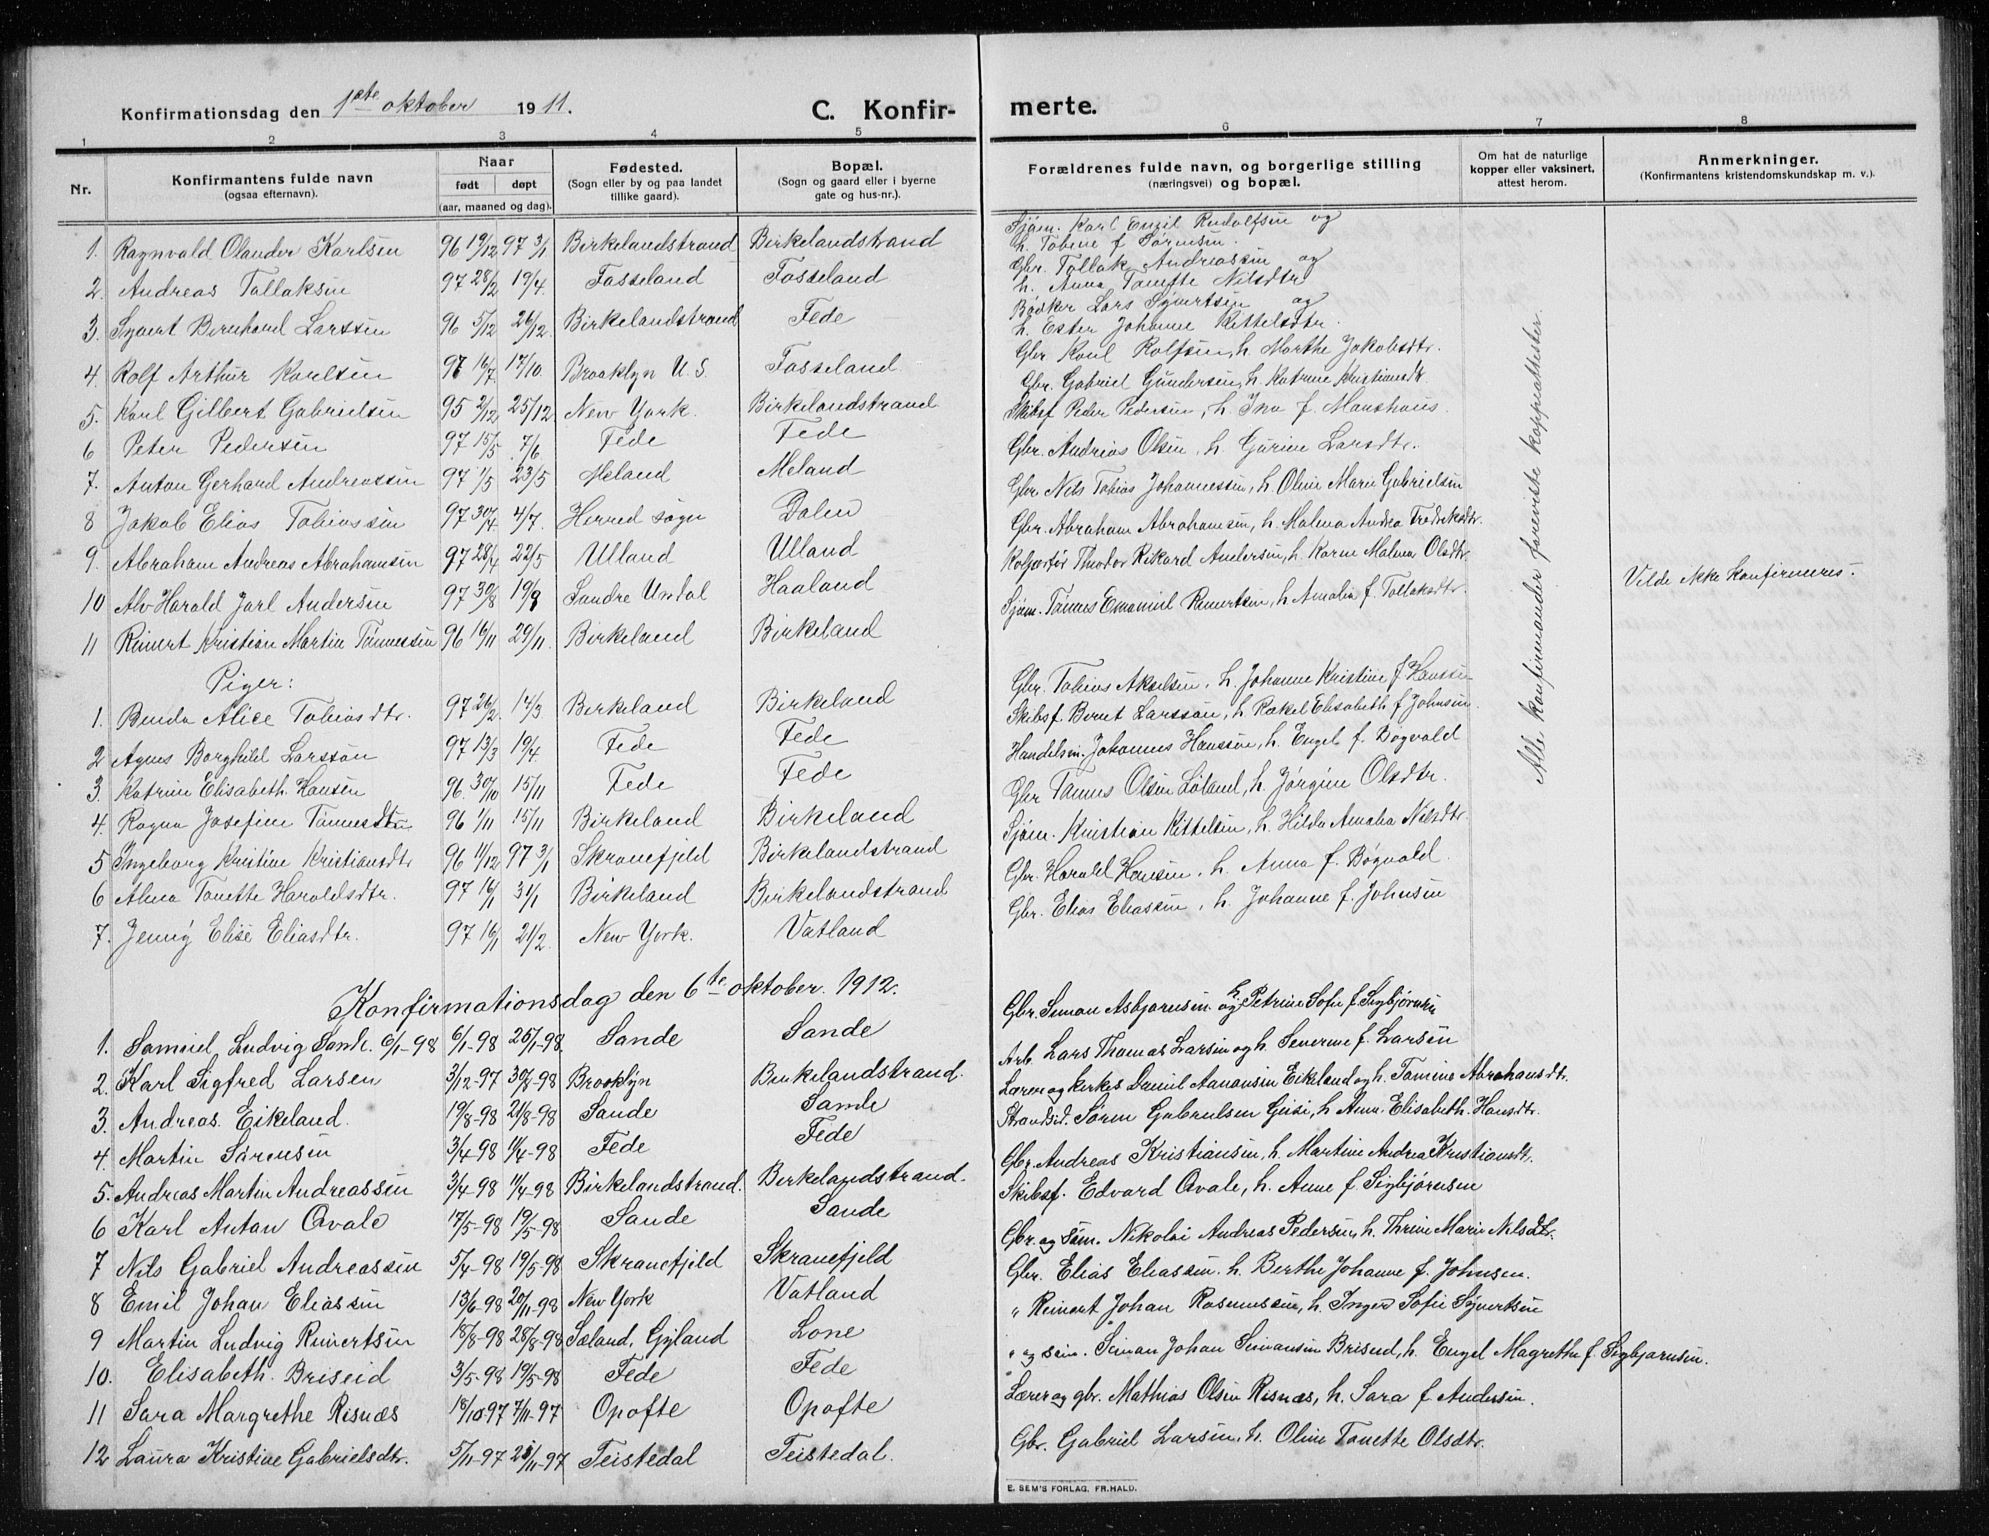 Konfirmationsdag den 1ste oktober 1911.
C. Konfirmerte.
1 2 3 4 5 6 7 8
Nr.
Konfirmantens fulde navn (ogsaa efternavn).
Naar født døpt (aar, maaned og dag).
Fødested. (Sogn eller by og paa landet tillike gaard).
Bopæl. (Sogn og gaard eller i byerne gate og hus-nr.).
Forældrenes fulde navn, og borgerlige stilling (næringsvei) og bopæl.
Om hat de naturlige kopper eller vaksinert, attest herom.
Anmerkninger. (Konfirmantens kristendomskundskap m. v.).
1. Ragnvald Olander Karlsen 96 19/12 97 3/1 Birkelandstrand Birkelandstrand Sjøm. Karl Emil Rudolfsen og h. Tobine f Sørensen.
2. Andreas Tallaksen 97 28/2 19/4 Fosseland Fosseland Gbr. Tallak Andreassen og h. Anna Tonette Nilsdtr
3. Syvert Bernhard Larssen 96 5/12 26/12 Birkelandstrand Fede Bødker Lars Syvertsen og h. Ester Johanne Kittelsdtr.
4. Rolf Arthur Karlsen 97 16/7 17/10 Brooklyn U.S. Fosseland Gbr Karl Rolfsen, h. Marthe Jakobsdtr.
5. Karl Gilbert Gabrielsen 95 2/12 25/12 New York. Birkelandstrand Gbr. Gabriel Gundersen, h. Katrine Kristiansdtr
6 Peter Pedersen 97 15/5 7/6 Fede Fede Skibsf Peder Pedersen, h. Ina f. Monshaus.
7. Anton Gerhard Andreassen 97 1/5 23/5 Meland Meland Gbr. Andreas Olsen, h. Gurine Larsdtr.
8 Jakob Elias Tobiassen 97 30/4 4/7 Herred sogn Dalen Gbr Nils Tobias Johannessen, h. Oline Marie Gabrielsen
9. Abraham Andreas Abrahamsen 97 28/4 22/5 Ulland Ulland Gbr. Abraham Abrahamsen, h. Malena Andrea Fredriksdtr.
10 Alv Harald Jarl Andersen 97 30/8 19/9 Søndre Undal Haaland Kolportør Theodor Rikard Andersen, h. Karen Malena Olsdtr. Vilde ikke konfirmeres.
11 Reinert Kristian Martin Tønnessen 96 16/11 29/11 Birkeland Birkeland Sjøm. Tønnes Emanuel Reinertsen, h. Amalia f. Tallaksdtr.
Alle konfirmander foreviste koppeattester.
Piger:
1. Benda Alice Tobiasdtr. 97 26/2 14/3 Birkeland Birkeland Gbr. Tobias Akselsen, h. Johanne Kristine f Hanssen
2 Agnes Borghild Larsson 97 13/3 19/4 Fede Fede Skibsf. Bernt Larsson, h. Rakel Elisabeth f Johnsen
3. Katrine Elisabeth Hansen 96. 30/10 15/11 Fede Fede Handelsm. Johannes Hanssen, h. Engel f. Bøgvald
4. Ragna Josefine Tønnesdtr 96 1/11 15/11 Birkeland Birkeland Gbr Tønnes Olsen Løland, h. Jørgine Olsdtr.
5 Ingeborg Kristine Kristiansdtr 96 11/12 97 3/1 Skranefjeld Birkelandstrand Sjøm. Kristian Kittelsen, h. Hilda Amalia Nilsdtr
6 Alma Tonette Haraldsdtr. 97 16/1 31/1 Birkeland Birkelandstrand Gbr. Harald Hansen, h. Anna f. Bøgvald.
7. Jenny Elise Eliasdtr. 97 16/1 21/2. New York. Vatland Gbr. Elias Eliassen, h. Johanne f. Johnsen
Konfirmationsdag den 6te oktober. 1912.
1. Samuel Ludvig Sande. 6/1-98 6/1-98 25/1-98. Sande Sande Gbr. Simon Asbjørnsen og h. Petrine Sofie f. Sigbjørnsen
2. Karl Sigfred Larsen 3/12-97 30/8-98 Brooklyn Birkelandstrand. Arb. Lars Thomas Larsen og h. Severine f. Larsen
3. Andreas. Eikeland. 19/8-98 21/8-98 Sande Sande Lærer og kirkes. Daniel Aanonsen Eikeland og h. Tomine Abrahamsdtr.
4 Martin Sørensen 3/4-98 11/4-98 Fede Fede Strandsid. Søren Gabrielsen Geisi, h. Anne Elisabeth Hansdtr.
5. Andreas Martin Andreassen 3/4-98 11/4-98 Birkelandstrand. Birkelandstrand. Gbr. Andreas Kristiansen, h. Martine Andrea Kristiansdt.
6 Karl Anton Ovale 17/5-98 19/5-98 Sande Sande Skibsf. Edvard Ovale, h. Anne f. Sigbjørnsen
7 Nils Gabriel Andreassen 5/4-98 19/5-98 Skranefjeld Skranefjeld Gbr. og søm. Nikolai Andreas Pedersen, h. Thrine Marie Nilsdtr.
8 Emil Johan Eliassen 13/6-98 20/11-98 New York Vatland Gbr. Elias Eliassen. h. Berthe Johanne f. Johnsen.
9 Martin Ludvig Reinertsen 18/8-98 28/8-98 Sæland, Gyland Lone " Reinert Johan Rasmussen, h. Inger Sofie Syvertsen
10. Elisabeth. Briseid 3/5-98 19/5-98 Fede Fede " og søm. Simon Johan Simonsen Briseid, h. Engel Magrethe f. Sigbjørnsen.
11 Sara Margrethe Risnæs 18/10 97 7/11-97 Opofte Opofte Lærer og gbr. Mathias Olsen Risnæs, h. Sara f. Andersen.
12 Laura Kristine Gabrielsdtr. 5/11-97 25/11-97 Teistedal Teistedal. Gbr. Gabriel Larsen, h. Oline Tonette Olsdtr.
E. SEM'S FORLAG, FR.HALD.